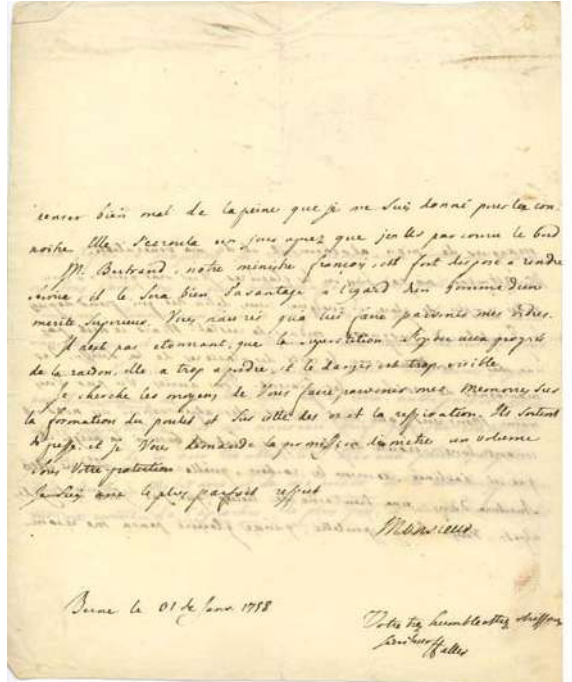 censer bien mal de la peine que je me suis donné pour la con
noitre Elle s'ecroula un jour aprez que j'en eus parcouru le bord
M. Bertrand, notre ministre françois, est fort disposé a rendre
service il le sera bien davantage a l'egard d'un homme d'un
merite superieur. Vous n'aurez qu'a lui faire parvenir vos ordres.
Il n'est pas etonnant, que la superstition aux progrès
de la raison, elle a trop a perdre, et le danger est trop visible
Je cherche les moyens de Vous faire parvenir mes Memoires sur
la formation du poulet et sur celle des os et la respiration. Ils sortent
de presse, et je Vous demande la permission d'en metre un volume
sous Votre protection
Je suis avec le plus parfait respect
Monsieur
Berne le 01 de Janv 1758
Votre trez humble et trez obeissant
serviteur Haller